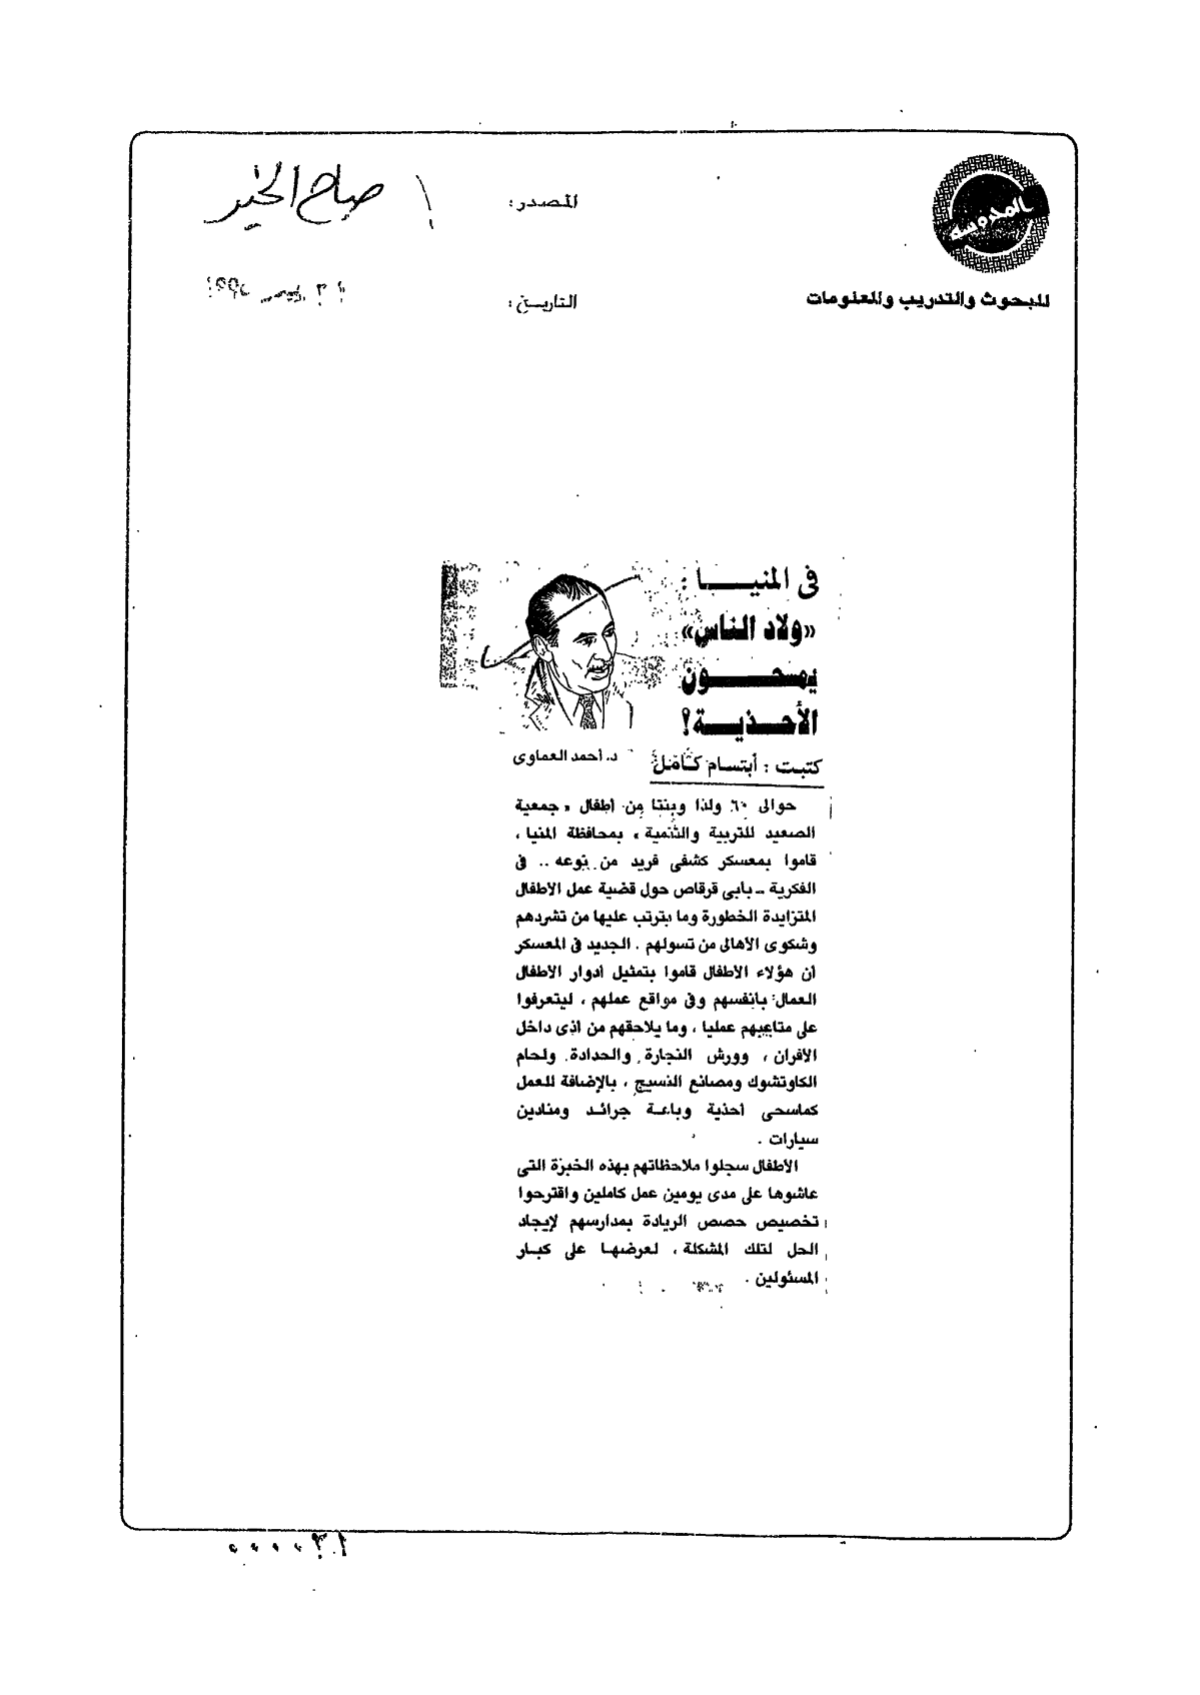 المدوسة
للبحوث والتدريب والمعلومات
المصدر: صباح الخير
التاريخ:
فى المنيا :
«ولاد الناس»
يمسحون
الأحذية؟
كتبت : أبتسام كامل
د. أحمد العماوى
حوالى ٦٠ ولدا وبنتا من أطفال « جمعية
الصعيد للتربية والتنمية » بمحافظة المنيا ،
قاموا بمعسكر كشفى فريد من نوعه .. فى
الفكرية ــ بابى قرقاص حول قضية عمل الاطفال
المتزايدة الخطورة وما يترتب عليها من تشردهم
وشكوى الأهالى من تسولهم . الجديد فى المعسكر
أن هؤلاء الأطفال قاموا بتمثيل أدوار الأطفال
العمال بانفسهم وفى مواقع عملهم ، ليتعرفوا
على متاعبهم عمليا ، وما يلاحقهم من اذى داخل
الافران ، وورش النجارة والحدادة ولحام
الكاوتشوك ومصانع النسيج ، بالإضافة للعمل
كماسحى أحذية وباعة جرائد ومنادين
سيارات .
الأطفال سجلوا ملاحظاتهم بهذه الخبرة التى
عاشوها على مدى يومين عمل كاملين واقترحوا
تخصيص حصص الريادة بمدارسهم لإيجاد
الحل لتلك المشكلة ، لعرضها على كبار
المسئولين .